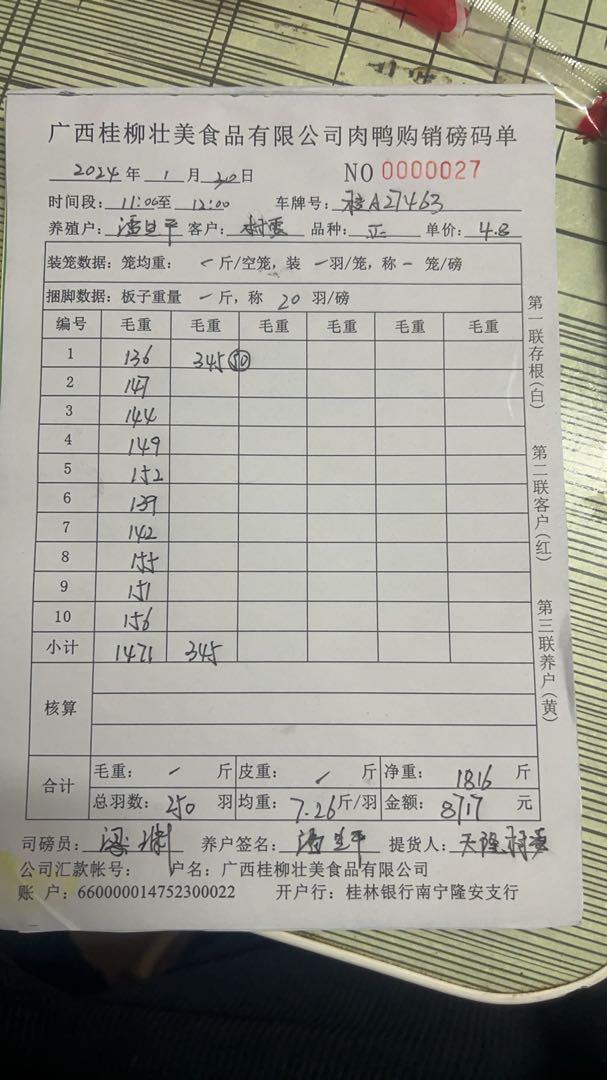 广西桂柳壮美食品有限公司肉鸭购销磅码单
2024年 1月 20日 NO 0000027
时间段: 11:00至 12:00 车牌号: 桂A27463
养殖户: 潘生平 客户: 品种: 正 单价: 4.8
装笼数据: 笼均重: 斤/空笼, 装 羽/笼, 称 笼/磅
捆脚数据: 板子重量 斤, 称 20 羽/磅
编号 毛重 毛重 毛重 毛重 毛重 毛重
1 136 345 50
2 147
3 144
4 149
5 152
6 139
7 142
8 155
9 151
10 156
小计 1471 345
核算
合计 毛重: 斤 皮重: 斤 净重: 1816 斤
总羽数: 250 羽 均重: 7.26斤/羽 金额: 8717 元
司磅员: 养户签名: 潘生平 提货人:
公司汇款帐号: 户名: 广西桂柳壮美食品有限公司
账 户: 660000014752300022 开户行: 桂林银行南宁隆安支行
第一联存根(白)
第二联客户(红)
第三联养户(黄)